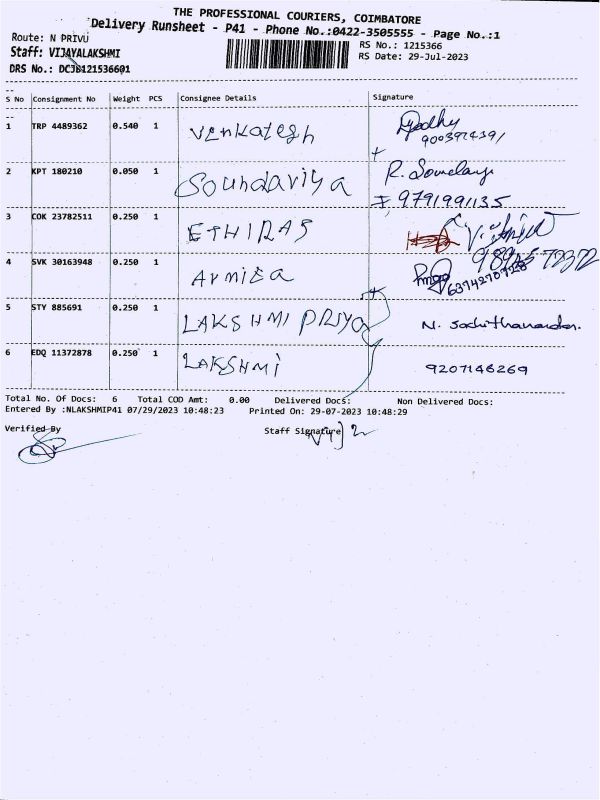 THE PROFESSIONAL COURIERS, COIMBATORE
Delivery Runsheet - P41 - Phone No.:0422-3505555 - Page No.:1
Route: N PRIVU
RS No.: 1215366
Staff: VIJAYALAKSHMI
RS Date: 29-Jul-2023
DRS No.: DCJB121536601
S No Consignment No Weight PCS Consignee Details Signature
1 TRP 4489362 0.540 1 Venkatesh
2 KPT 180210 0.050 1 Soundariya R.
9791991135
3 COK 23782511 0.250 1 ETHIRAS
4 SVK 30163948 0.250 1
6374270728
5 STY 885691 0.250 1 LAKSHMI PRIYA N.
6 EDQ 11372878 0.250 1 LAKSHMI 9207146269
Total No. Of Docs: 6 Total COD Amt: 0.00 Delivered Docs: Non Delivered Docs:
Entered By :NLAKSHMIP41 07/29/2023 10:48:23 Printed On: 29-07-2023 10:48:29
Verified By Staff Signature